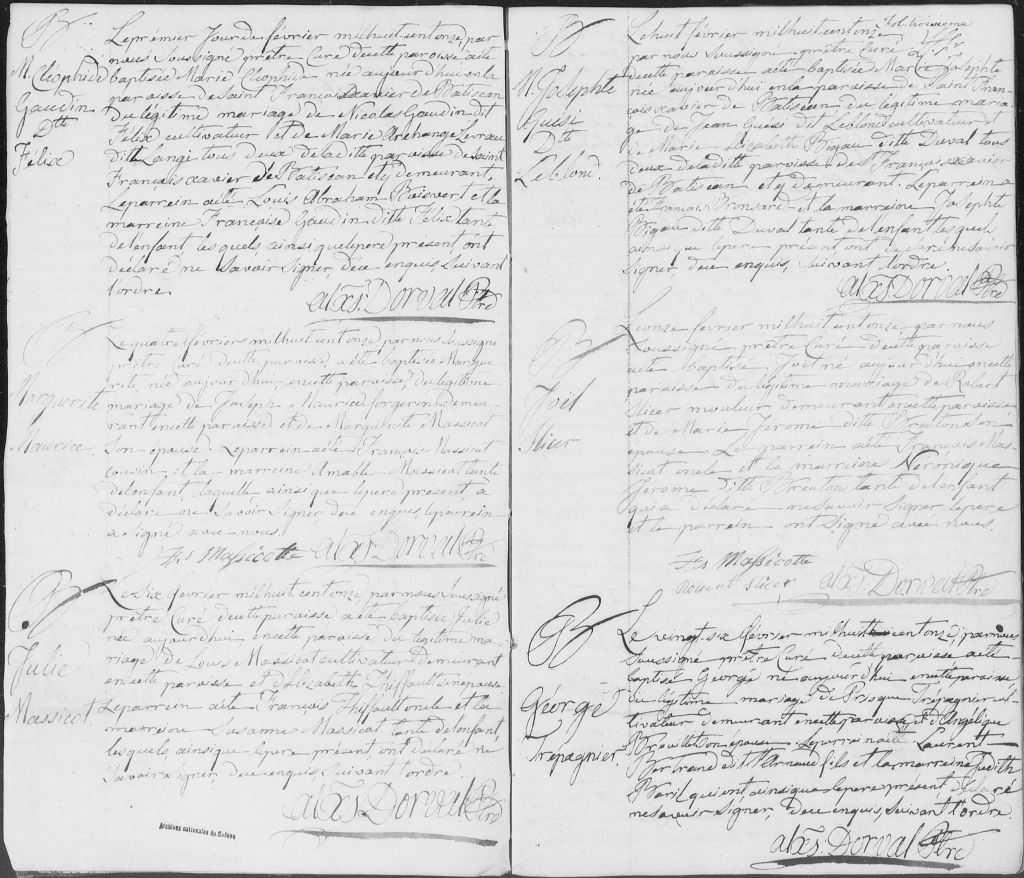 B
M. Cléophie
Gaudin
Dtte
Felix
Le premier Jour de février mil huit cent onze, par
nous Soussigné prêtre Curé de cette paroisse a été
baptisée Marie Cleophie née aujourd'hui en la
paroisse de Saint François Xavier de Batiscan
du légitime mariage de Nicolas Gaudin dit
Felix cultivateur et de Marie Archange Levrau
ditte Langi tous deux de la ditte paroisse de Saint
François xavier de Batiscan et y demeurant.
Le parrein a été Louis Abraham Boisvert et la
marreine Françoise Gaudin ditte Felix tante
de l'enfant lesquels ainsi que le pere présent ont
déclaré ne Savoir Signer, de ce enquis, Suivant
l'ordre.
alexs. Dorval Ptre
B
Marguerite
Maurice
Le quatre février mil huit cent onze par nous Soussigné
prêtre Curé de cette paroisse a été baptisée Margue
rite née aujourd'hui en cette paroisse, du légitime
mariage de Joseph Maurice forgeron demeu
rant en cette paroisse et de Marguerite Massicot
Son épouse. Le parrein a été François Massicot
cousin, et la marreine Amable Massicot tante
de l'enfant, laquelle ainsi que le pere présent, a
déclaré ne Savoir Signer de ce enquis, le parrein
a Signé avec nous.
Frs Massicotte alexs. Dorval Ptre
B
Julie
Massicot
Le Six février mil huit cent onze, par nous Soussigné
prêtre Curé de cette paroisse a été baptisée Julie
née aujourd'hui en cette paroisse du légitime ma
riage de Louis Massicot cultivateur demeurant
en cette paroisse et d'Elizabeth Thiffault Son épouse
Le parrein a été François Thiffault oncle et la
marreine Susanne Massicot tante de l'enfant,
lesquels, ainsi que le pere présent, ont déclaré ne
Savoir Signer, de ce enquis, Suivant l'ordre.
alexs. Dorval Ptre
Archives nationales du Québec
fol. troisieme
B
M. Josephte
Guesi
Dtte
Leblond.
Le huit février mil huit cent onze
par nous Soussigné prêtre Curé
de cette paroisse a été baptisée Marie Josephte
née aujourd'hui en la paroisse de Saint Fran
çois xavier de Batiscan du légitime maria
ge de Jean Guesi dit Leblond cultivateur et
de Marie Elizabeth Bigau ditte Duval tous
deux de la ditte paroisse de St François xavier
de Batiscan et y demeurant. Le parrein a
été François Bronsard et la marreine Josephte
Bigau ditte Duval tante de l'enfant lesquels
ainsi que le pere présent ont déclaré ne Savoir
Signer, de ce enquis, Suivant l'ordre.
alexs. Dorval Ptre
B
Joil
Slicer
Le onze février mil huit cent onze, par nous
Soussigné prêtre Curé de cette paroisse
a été baptisé Joel né aujourd'hui en cette
paroisse du légitime mariage de Robert
Slicer mouleur demeurant en cette paroisse
et de Marie Jérome ditte Breuton Son
épouse. Le parrein a été François Mas
sicot oncle et la marreine Véronique
Jerome ditte Breuton tante de l'enfant
qui a déclaré ne Savoir Signer le pere
et le parrein ont Signé avec nous.
Frs Massicotte
Robert Slicer alexs. Dorval Ptre
B
George
Trépagnier
Le vingt six février mil huit cent onze, par nous
Soussigné prêtre Curé de cette paroisse a été
baptisé George né aujourd'hui en cette paroisse
du légitime mariage de Prisque Trépagnier cul
tivateur demeurant en cette paroisse et d'Angelique
Brouillet Son épouse. Le parrein a été Laurent
Bertrand dit St Arnaud fils et la marreine Judith
Baril qui ont, ainsi que le pere présent déclaré
ne Savoir Signer, de ce enquis, Suivant l'ordre.
alexs. Dorval Ptre